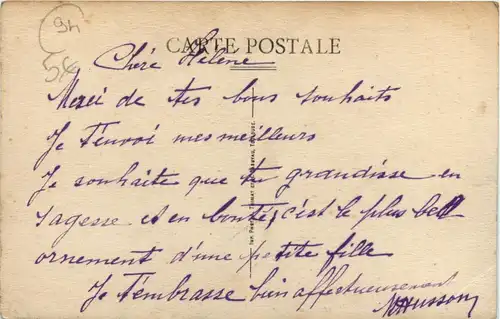 94
5€
CARTE POSTALE
Chère Hélène
Merci de tes bons souhaits
Je t'envoi mes meilleurs
Je souhaite que tu grandisse en
sagesse et en bonté, c'est le plus bell
ornement d'une petite fille
Je t'embrasse bien affectueusement